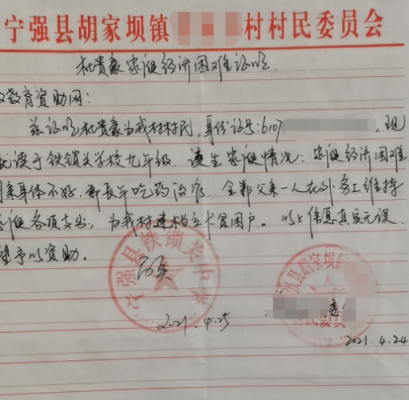 宁强县胡家坝镇 村村民委员会
杜贵豪家庭经济困难证明
教育资助网：
兹证明杜贵豪为我村村民，身份证号：6107 现
就读于铁锁关学校九年级。该生家庭情况：家庭经济困难
亲身体不好，常年吃药治疗，全靠父亲一人在外务工维持
家庭各项支出，为我村建档立卡贫困户。以上信息真实无误
望予以资助。
情况
宁强县铁锁关中学
宁强县胡家坝
民委员
委
2021.4.25
2021.4.24